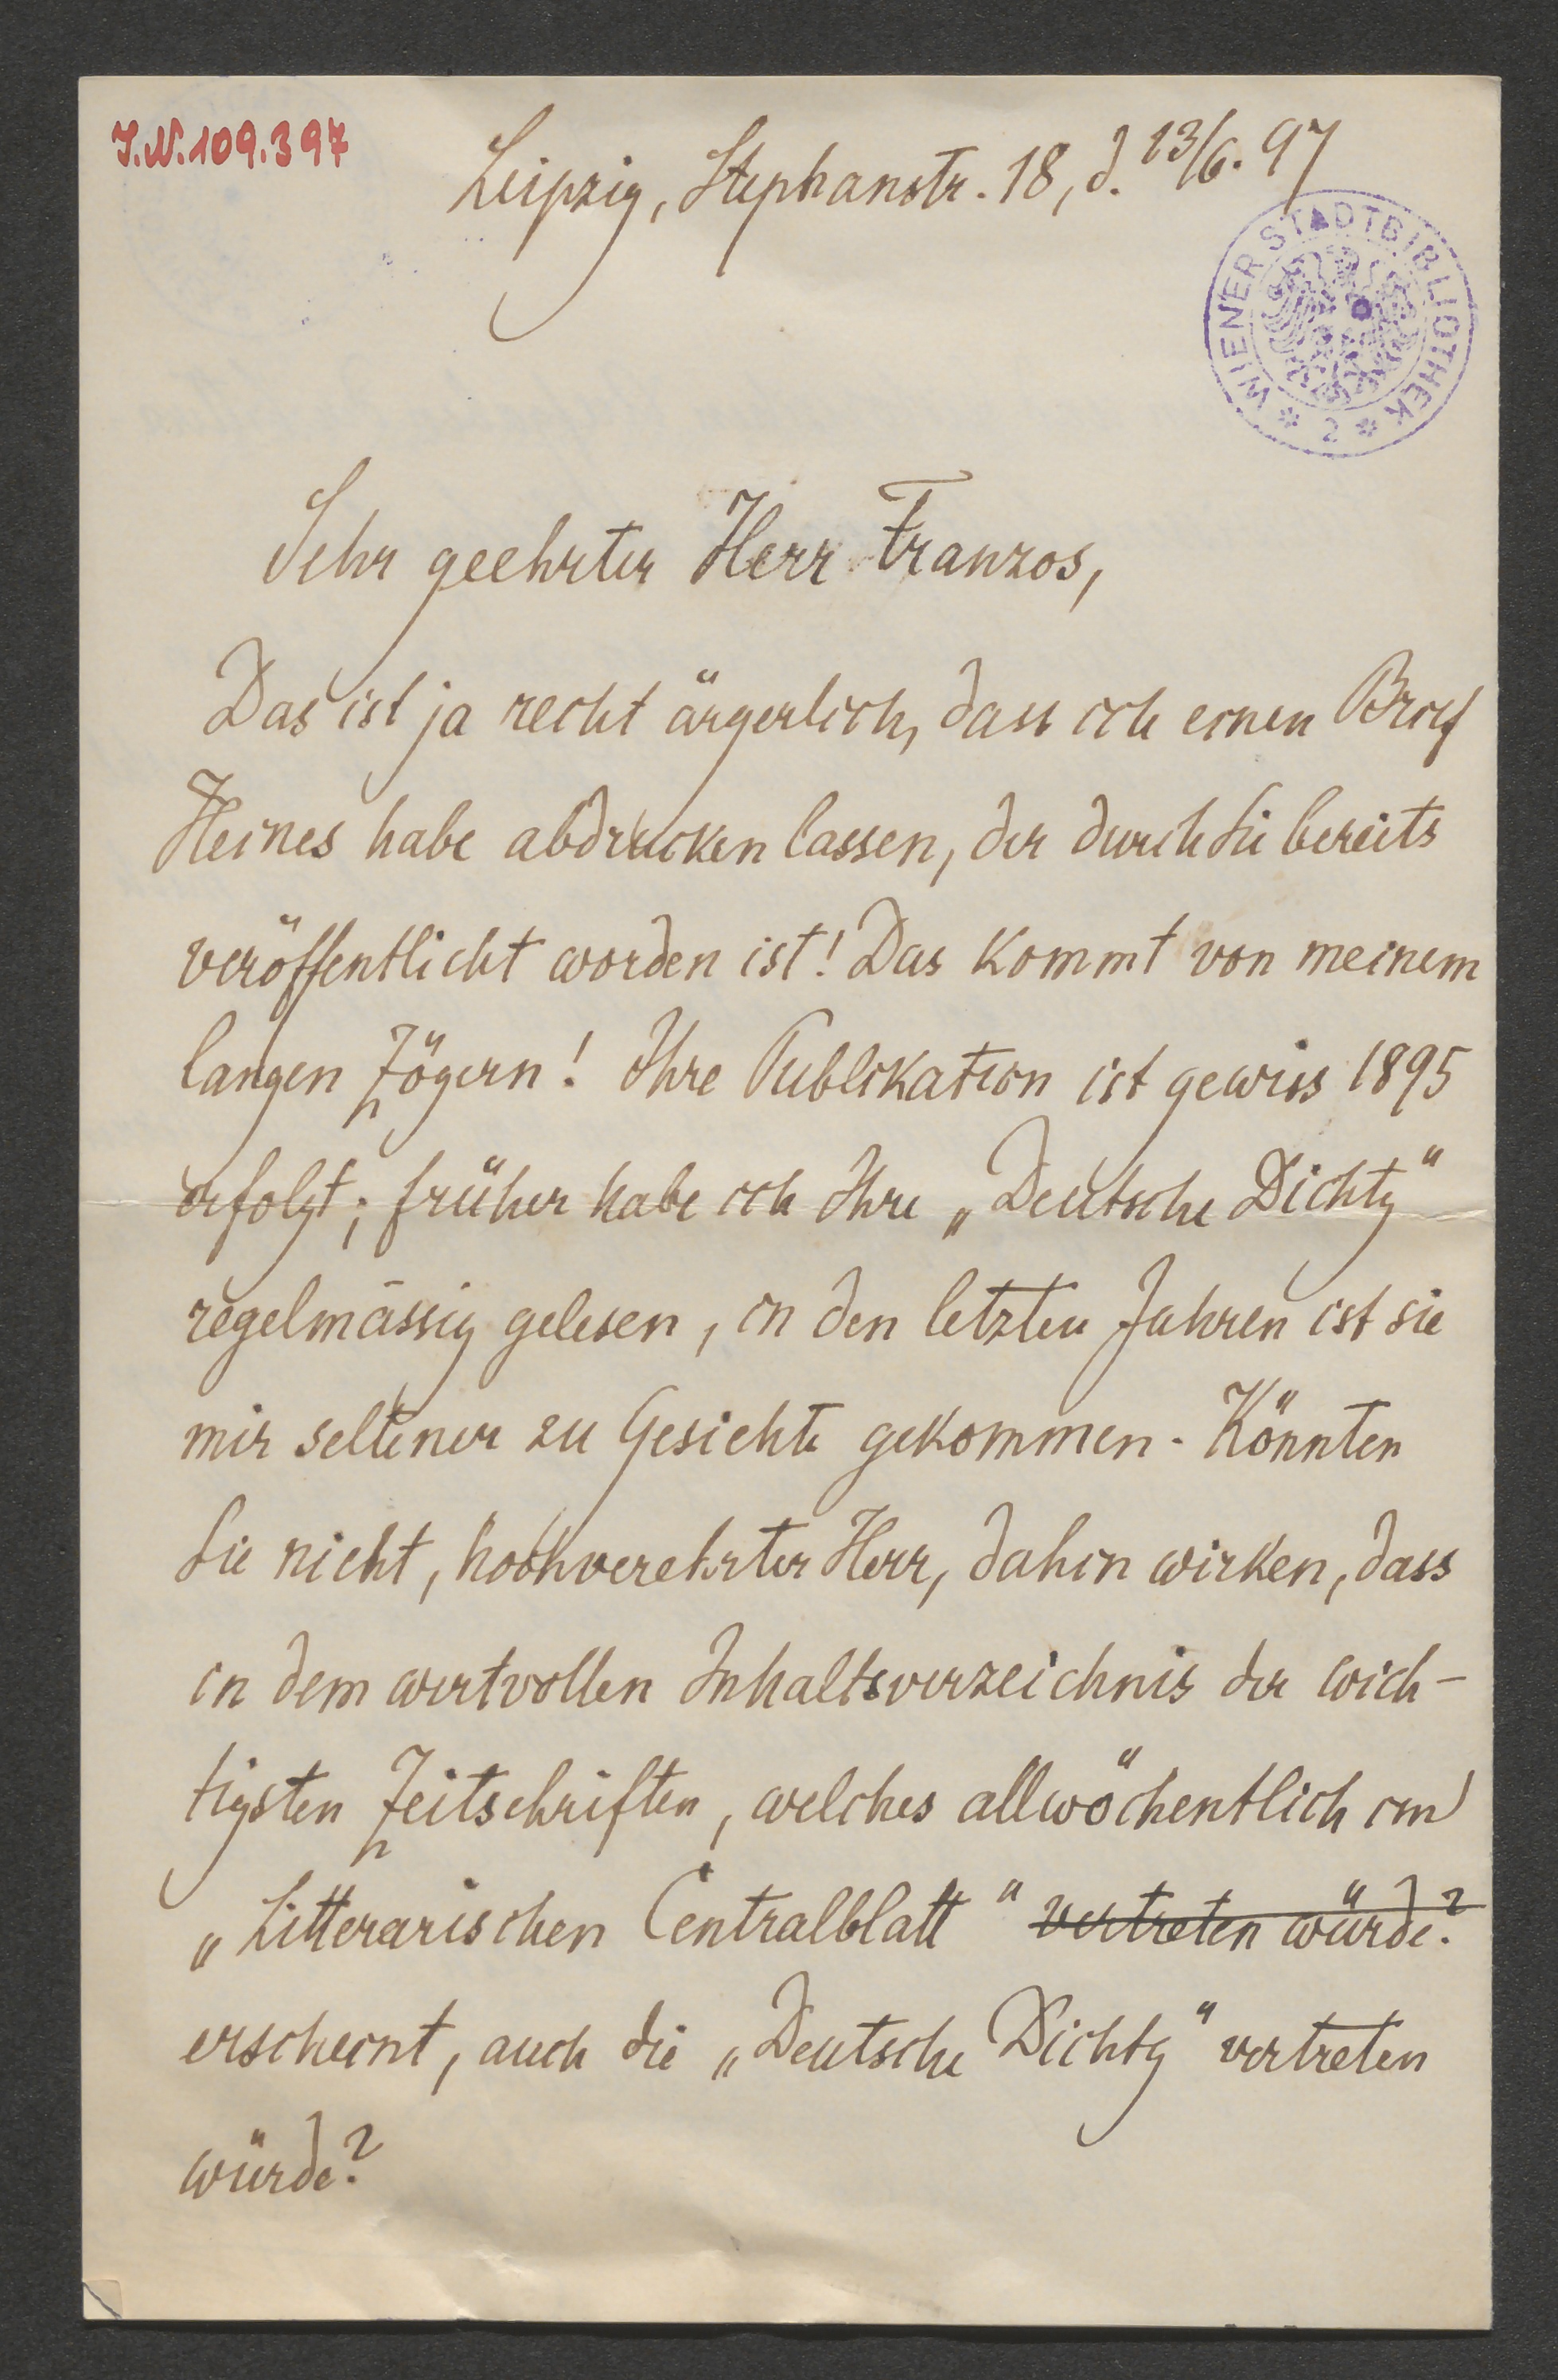 J.N. 109.397
Leipzig, Stephanstr. 18, d. 13/6. 97
WIENER STADTBIBLIOTHEK * 2 *
Sehr geehrter Herr Franzos,
Das ist ja recht ärgerlich, dass ich einen Brief
Heines habe abdrucken lassen, der durch Sie bereits
veröffentlicht worden ist! Das kommt von meinem
langen Zögern! Ihre Publikation ist gewiss 1895
erfolgt; früher habe ich Ihre „Deutsche Dichtg“
regelmässig gelesen, in den letzten Jahren ist sie
mir seltener zu Gesichte gekommen. Könnten
Sie nicht, hochverehrter Herr, dahin wirken, dass
in dem wertvollen Inhaltsverzeichnis der wich-
tigsten Zeitschriften, welches allwöchentlich im
„Litterarischen Centralblatt“ vertreten würde?
erscheint, auch die „Deutsche Dichtg“ vertreten
würde?